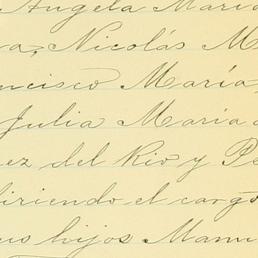 Angela María
va, Nicolás M
ncisco María,
Julia María
ez del Rio y Pe
firiendo el cargo
us hijos Manu